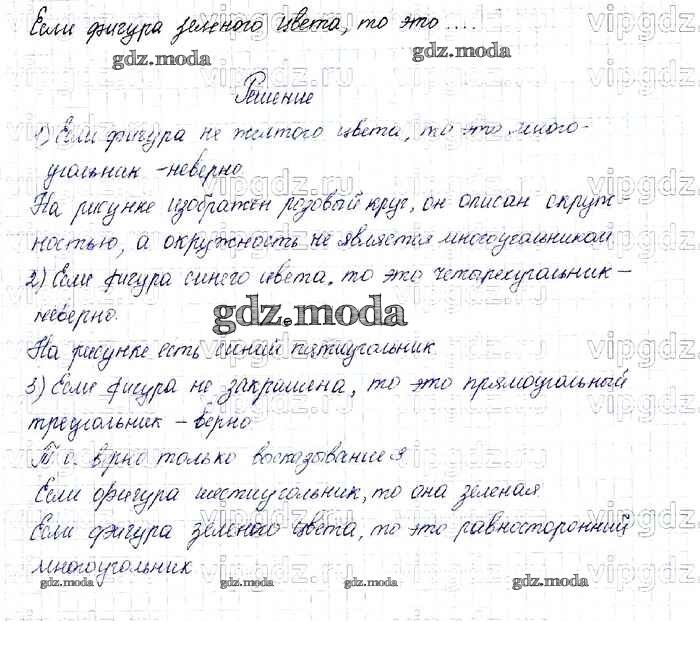 Если фигура зеленого цвета, то это ....
gdz.moda gdz.moda
Решение
1) Если фигура не желтого цвета, то это много-
угольник - неверно
На рисунке изображен розовый круг, он описан окруж-
ностью, а окружность не является многоугольником
2) Если фигура синего цвета, то это четырехугольник -
неверно.
gdz.moda
На рисунке есть синий пятиугольник
3) Если фигура не закрашена, то это прямоугольный
треугольник - верно
Т о. врно только высказывание 3
Если фигура шестиугольник, то она зеленая
Если фигура зеленого цвета, то это равносторонний
многоугольник
gdz.moda gdz.moda gdz.moda gdz.moda